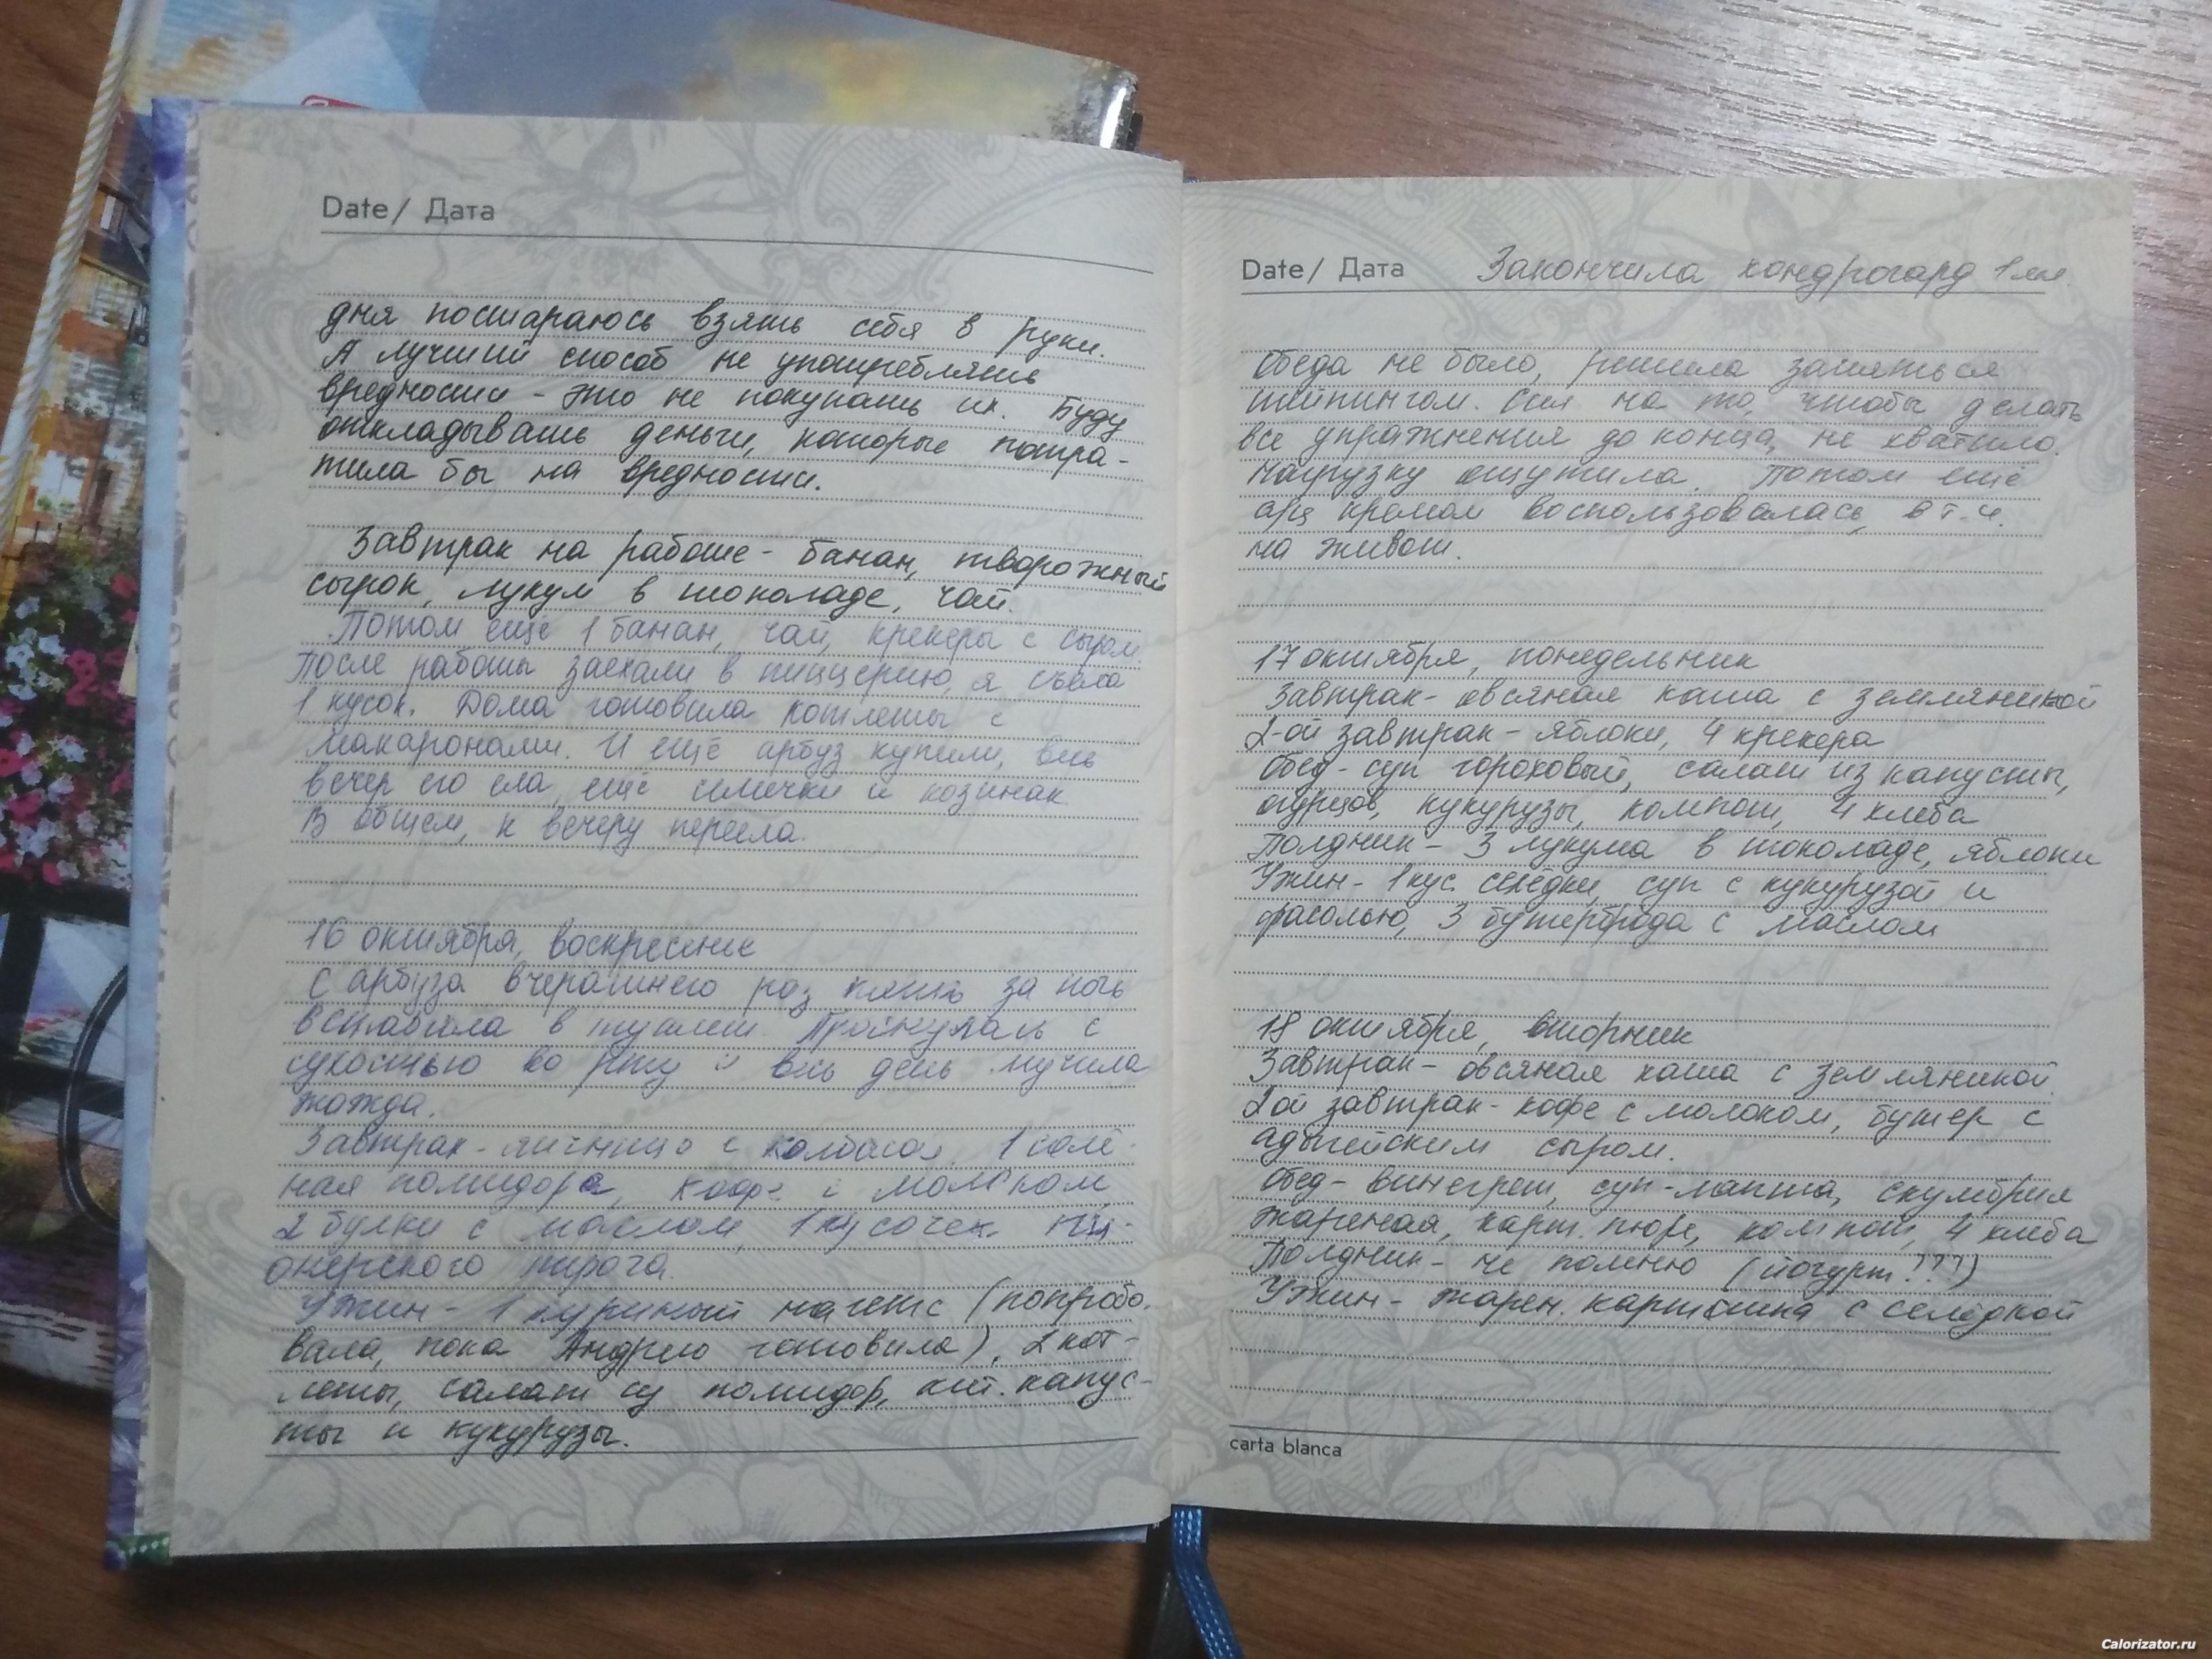 Date/ Дата
дня постараюсь взять себя в руки.
А лучший способ не употреблять
вредности - это не покупать их. Буду
откладывать деньги, которые потра-
тила бы на вредности.
Завтрак на работе - банан, творожный
сырок, лукум в шоколаде, чай.
Потом ещё 1 банан, чай, крекеры с сыром.
После работы заехали в пиццерию, я съела
1 кусок. Дома готовила котлеты с
макаронами. И ещё арбуз купили, весь
вечер его ела, ещё семечки и козинак.
В общем, к вечеру переела.
16 октября, воскресенье
С арбуза вчерашнего раз пять за ночь
вставала в туалет. Проснулась с
сухостью во рту и весь день мучила
жажда.
Завтрак - яичница с колбасой, 1 солё-
ная помидора, кофе с молоком
2 булки с маслом, 1 кусочек пи-
онерского пирога.
Ужин - 1 куриный нагетс (попробо-
вала, пока Андрею готовила), 2 кот-
леты, салат из помидор, кит. капус-
ты и кукурузы.
Date/ Дата Закончила хондрогард 1 мл.
Обеда не было, решила заняться
шейпингом. Сил на то, чтобы делать
все упражнения до конца, не хватило.
Нагрузку ощутила. Потом ещё
кремом воспользовалась, в т.ч.
на живот.
17 октября, понедельник
Завтрак - овсяная каша с земляникой
2-ой завтрак - яблоки, 4 крекера
Обед - суп гороховый, салат из капусты,
огурцов, кукурузы, компот, 4 хлеба
Полдник - 3 лукума в шоколаде, яблоки
Ужин - 1 кус. селёдки, суп с кукурузой и
фасолью, 3 бутерброда с маслом
18 октября, вторник
Завтрак - овсяная каша с земляникой.
2ой завтрак - кофе с молоком, бутер с
адыгейским сыром.
Обед - винегрет, суп-лапша, скумбрия
жареная, карт. пюре, компот, 4 хлеба
Полдник - не помню (йогурт???)
Ужин - жарен. картошка с селёдкой
carta blanca
Calorizator.ru